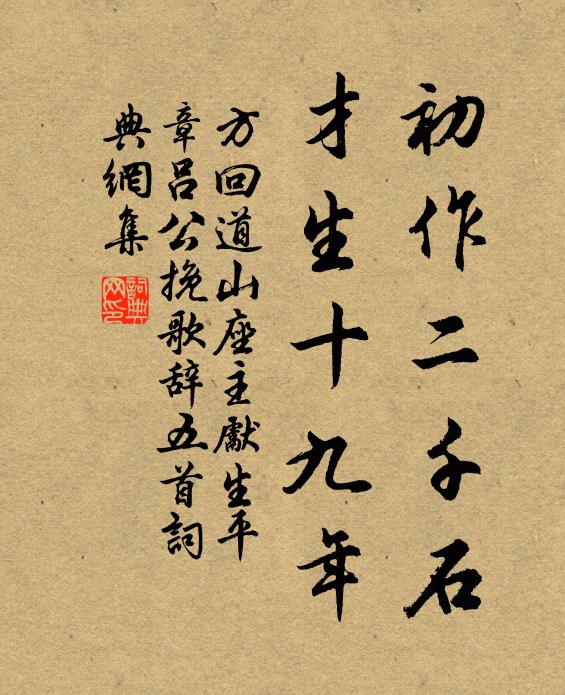 初作二千石
才生十九年
方回道山座主獻生平
章呂公挽歌辞五首詞
典網集
詞典網印